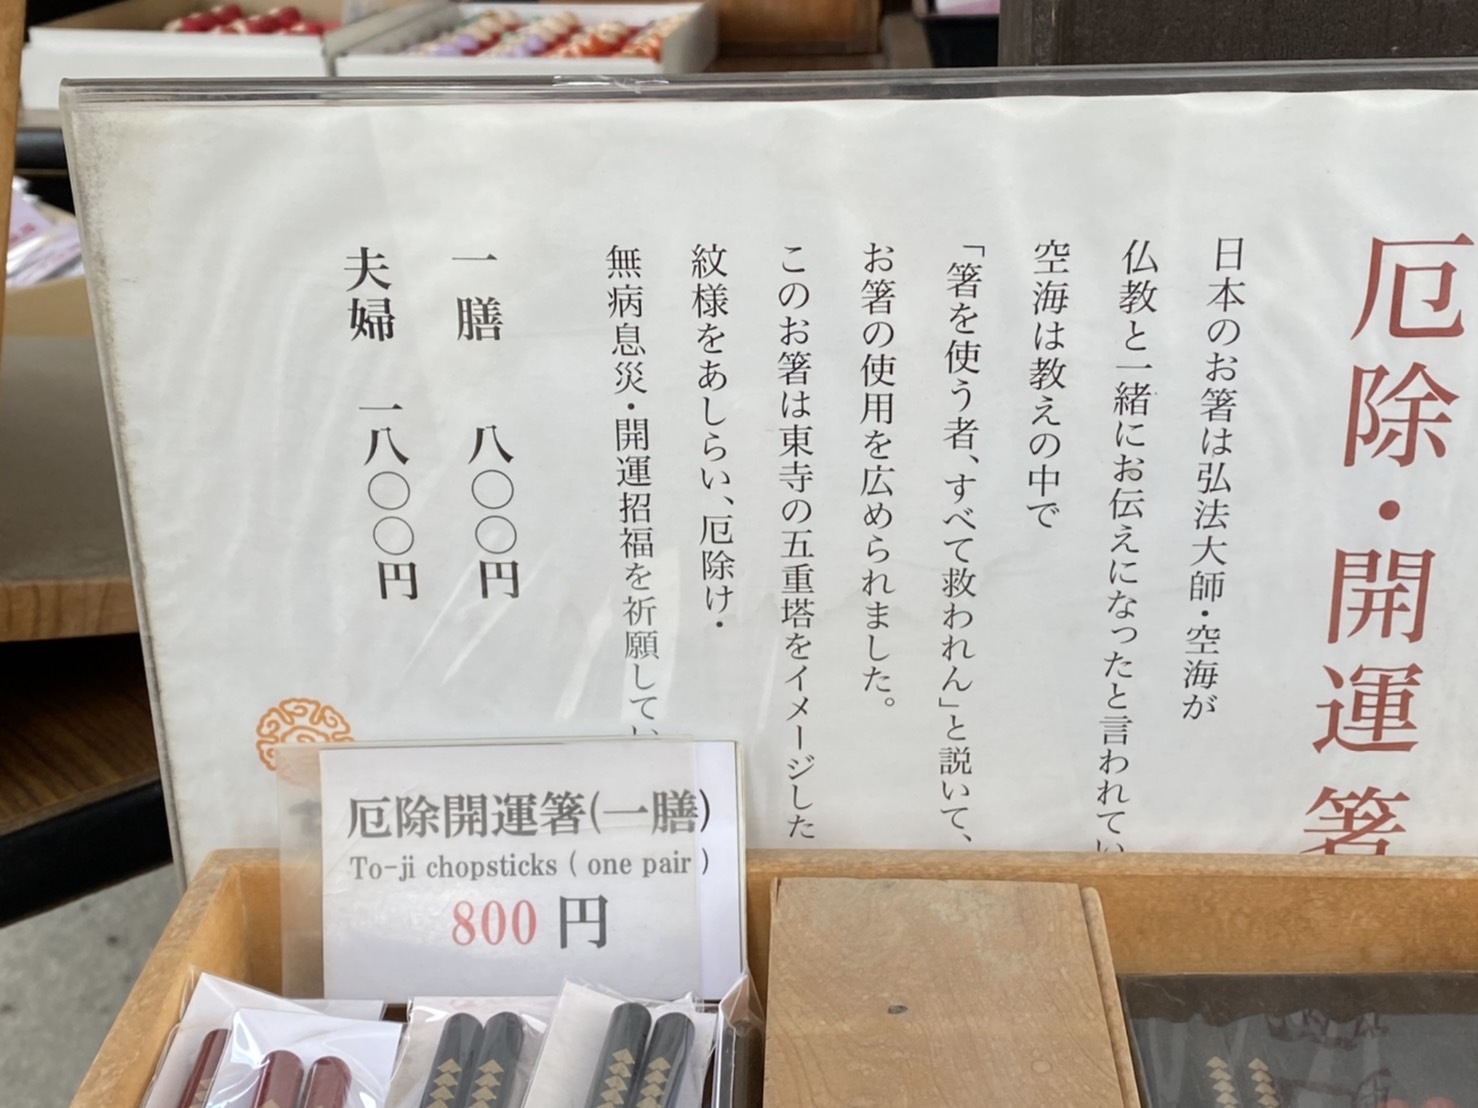 厄除・開運箸
日本のお箸は弘法大師・空海が
仏教と一緒にお伝えになったと言われてい
空海は教えの中で
「箸を使う者、すべて救われん」と説いて、
お箸の使用を広められました。
このお箸は東寺の五重塔をイメージした
紋様をあしらい、厄除け・
無病息災・開運招福を祈願してい
一膳 八〇〇円
夫婦 一八〇〇円
厄除開運箸(一膳)
To-ji chopsticks ( one pair )
800円